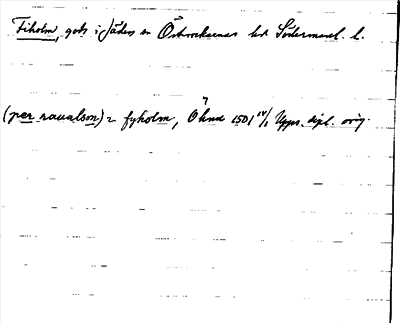 Fiholm, gods i Jäders sn Österrekarnes hd Södermanl. l.
(per raualson) = fyholm, Öhnd 1501 IV/1 Upps. dipl. orig.